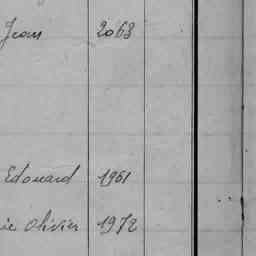 Jean 2063
Edouard 1961
ie Olivier 1972